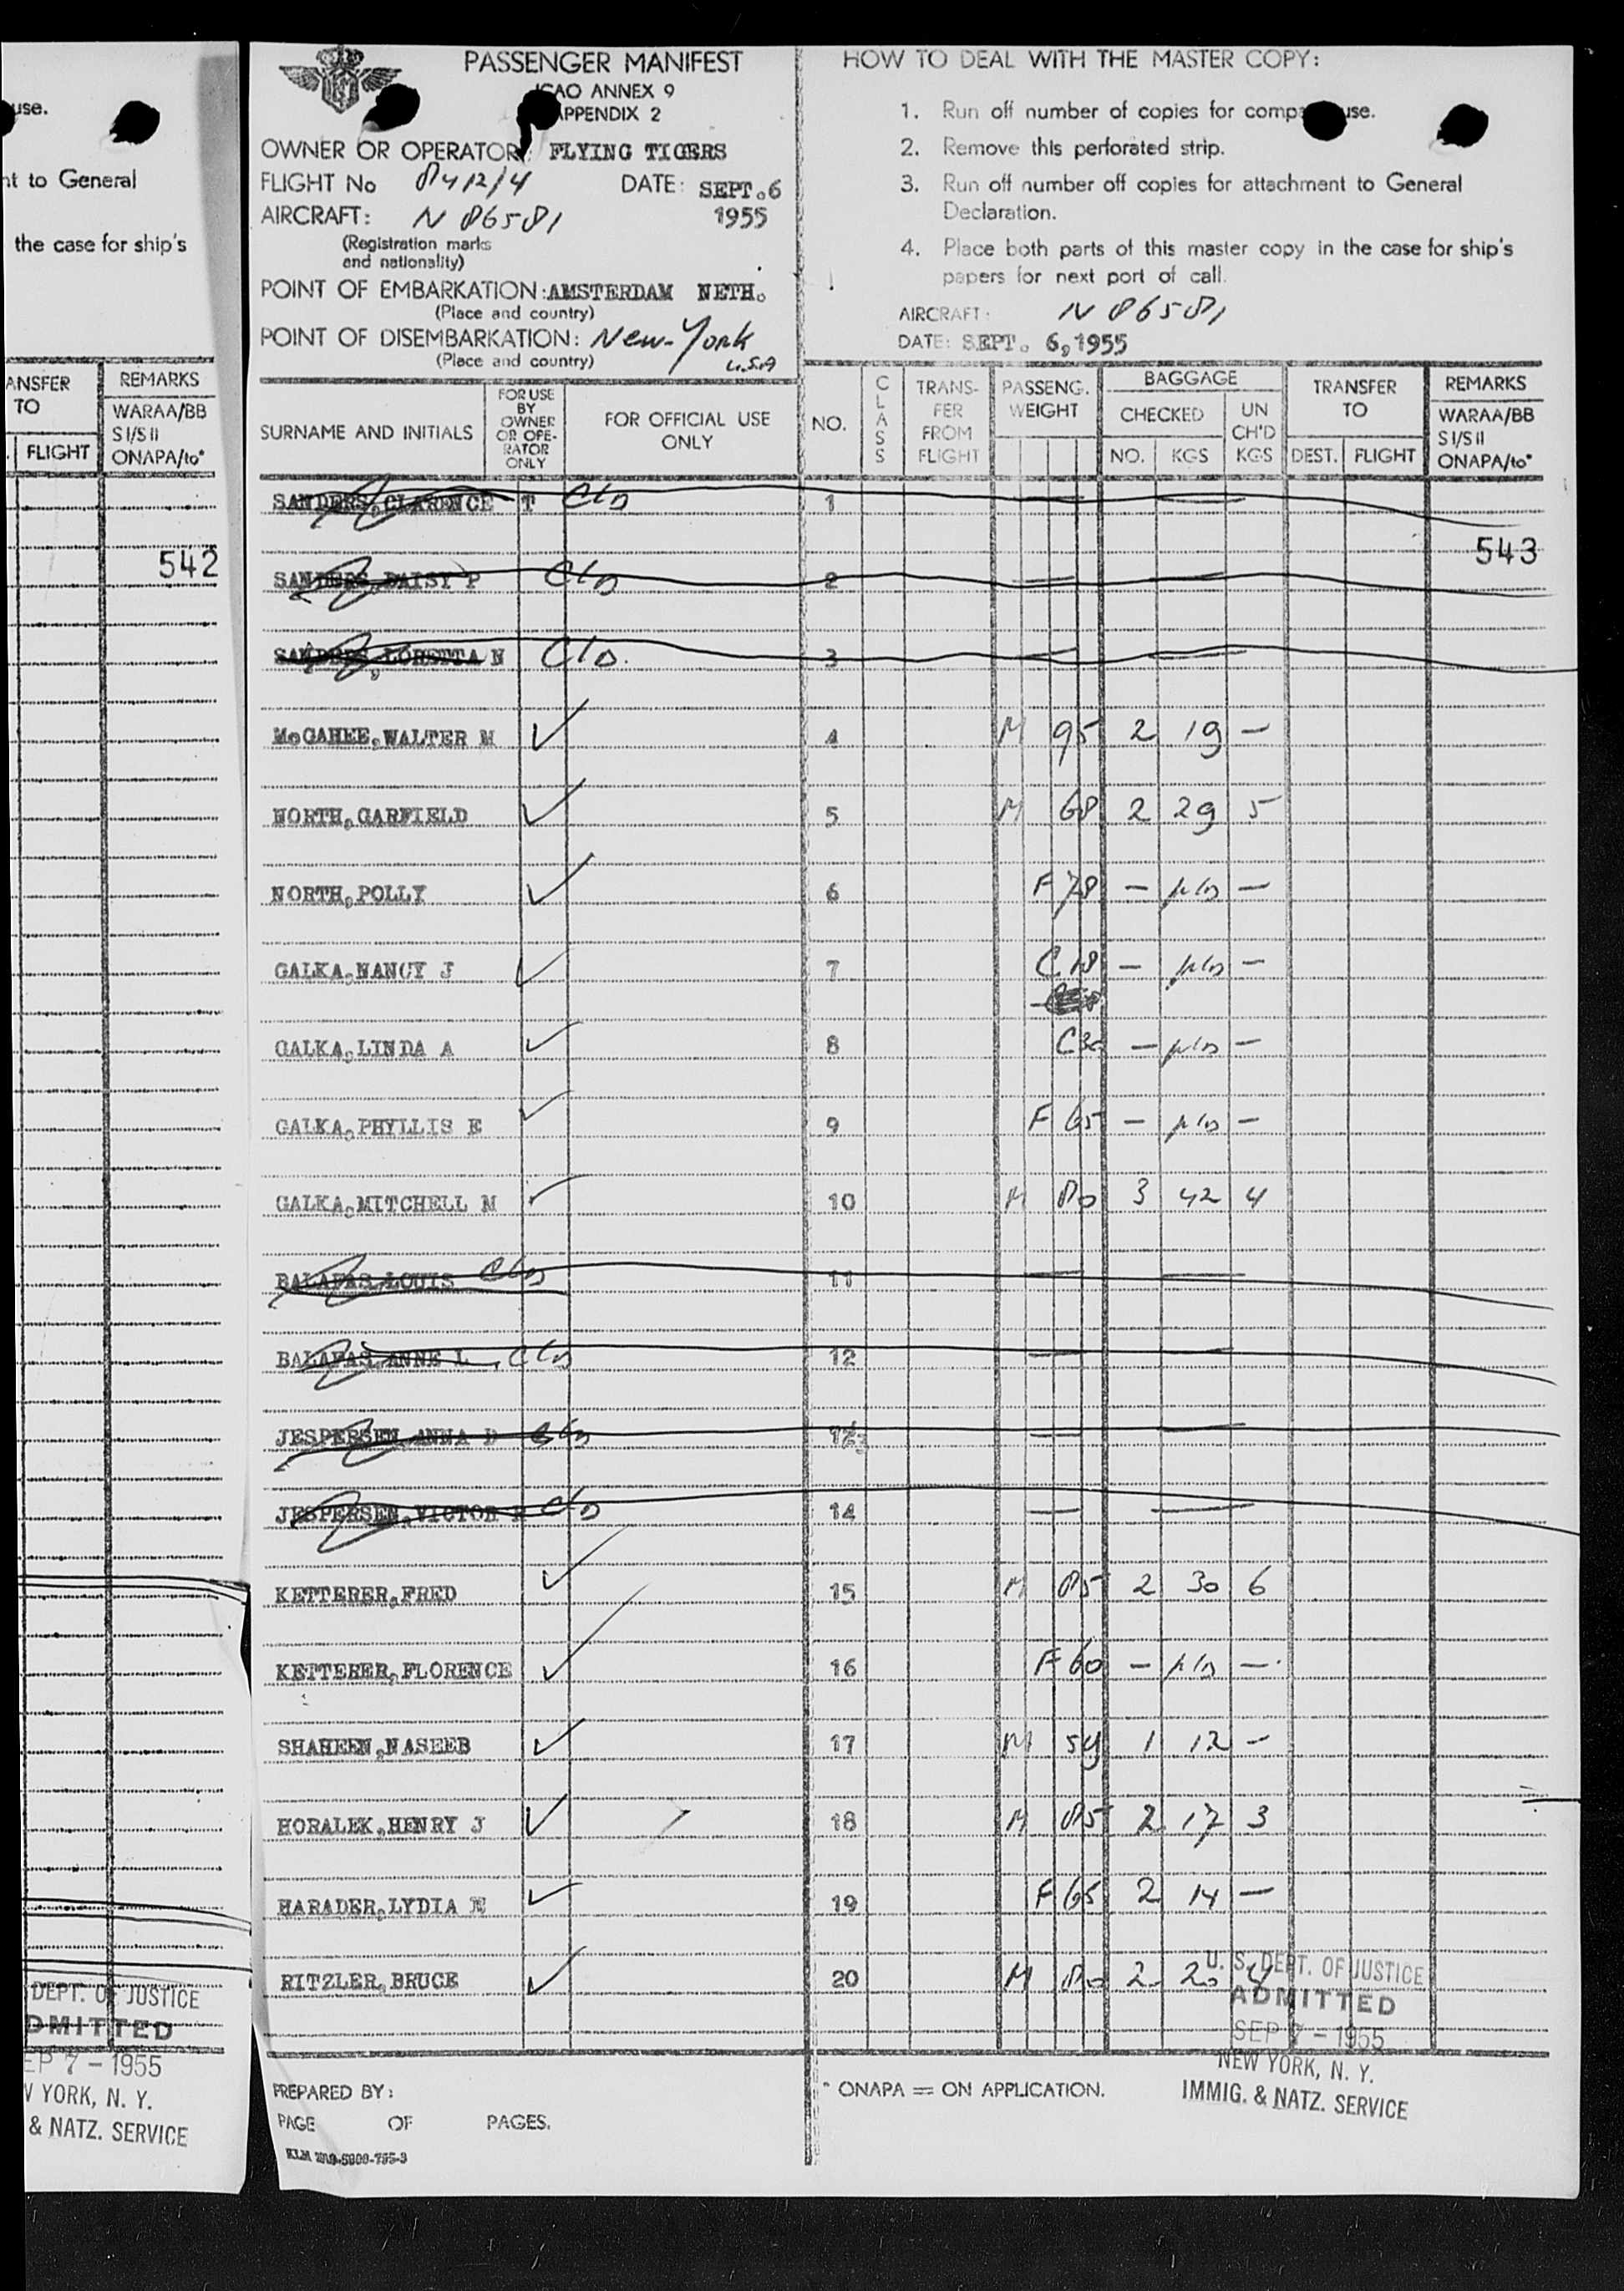 use.
nt to General
the case for ship's
ANSFER
TO
FLIGHT
REMARKS
WARAA/BB
S I/S II
ONAPA/to*
542
DEPT. OF JUSTICE
DMITTED
EP 7 - 1955
W YORK, N. Y.
& NATZ. SERVICE
PASSENGER MANIFEST
ICAO ANNEX 9
APPENDIX 2
OWNER OR OPERATOR: FLYING TIGERS
FLIGHT No 8412/4 DATE: SEPT.6
AIRCRAFT: N 86581 1955
(Registration marks
and nationality)
POINT OF EMBARKATION: AMSTERDAM NETH.
(Place and country)
POINT OF DISEMBARKATION: New-York
(Place and country) U.S.A
HOW TO DEAL WITH THE MASTER COPY:
1. Run off number of copies for compa use.
2. Remove this perforated strip.
3. Run off number off copies for attachment to General
Declaration.
4. Place both parts of this master copy in the case for ship's
papers for next port of call.
AIRCRAFT: N 86581
DATE: SEPT. 6, 1955
SURNAME AND INITIALS
FOR USE
BY
OWNER
OR OPE-
RATOR
ONLY
FOR OFFICIAL USE
ONLY
NO.
CLASS
TRANS-
FER
FROM
FLIGHT
PASSENG.
WEIGHT
BAGGAGE
CHECKED
NO. KGS
UN
CH'D
KGS
TRANSFER
TO
DEST. FLIGHT
REMARKS
WARAA/BB
S I/S II
ONAPA/to*
SANDERS, CLARENCE T Cln 1
543
SANDERS, DAISY P Cln 2
SANDERS, LORETTA N Cln. 3
McGAHEE, WALTER M ✓ 4 M 95 2 19 —
NORTH, GARFIELD ✓ 5 M 68 2 29 5
NORTH, POLLY ✓ 6 F 78 — pln —
GALKA, NANCY J ✓ 7 C 18 — pln —
GALKA, LINDA A ✓ 8 C 30 — pln —
GALKA, PHYLLIS E ✓ 9 F 65 — pln —
GALKA, MITCHELL M ✓ 10 M 80 3 42 4
BALAFAS, LOUIS Cln 11
BALAFAS, ANNE L Cln 12
JESPERSEN, ANNA D Cln 13
JESPERSEN, VICTOR Cln 14
KETTERER, FRED ✓ 15 M 85 2 30 6
KETTERER, FLORENCE ✓ 16 F 60 — pln —
SHAHEEN, NASEEB ✓ 17 M 54 1 12 —
HORALEK, HENRY J ✓ 18 M 85 2 17 3
HARADER, LYDIA E ✓ 19 F 65 2 14 —
RITZLER, BRUCE ✓ 20 M 80 2 20 4
U. S. DEPT. OF JUSTICE
ADMITTED
SEP 7 - 1955
NEW YORK, N. Y.
IMMIG. & NATZ. SERVICE
PREPARED BY:
PAGE OF PAGES.
* ONAPA = ON APPLICATION.